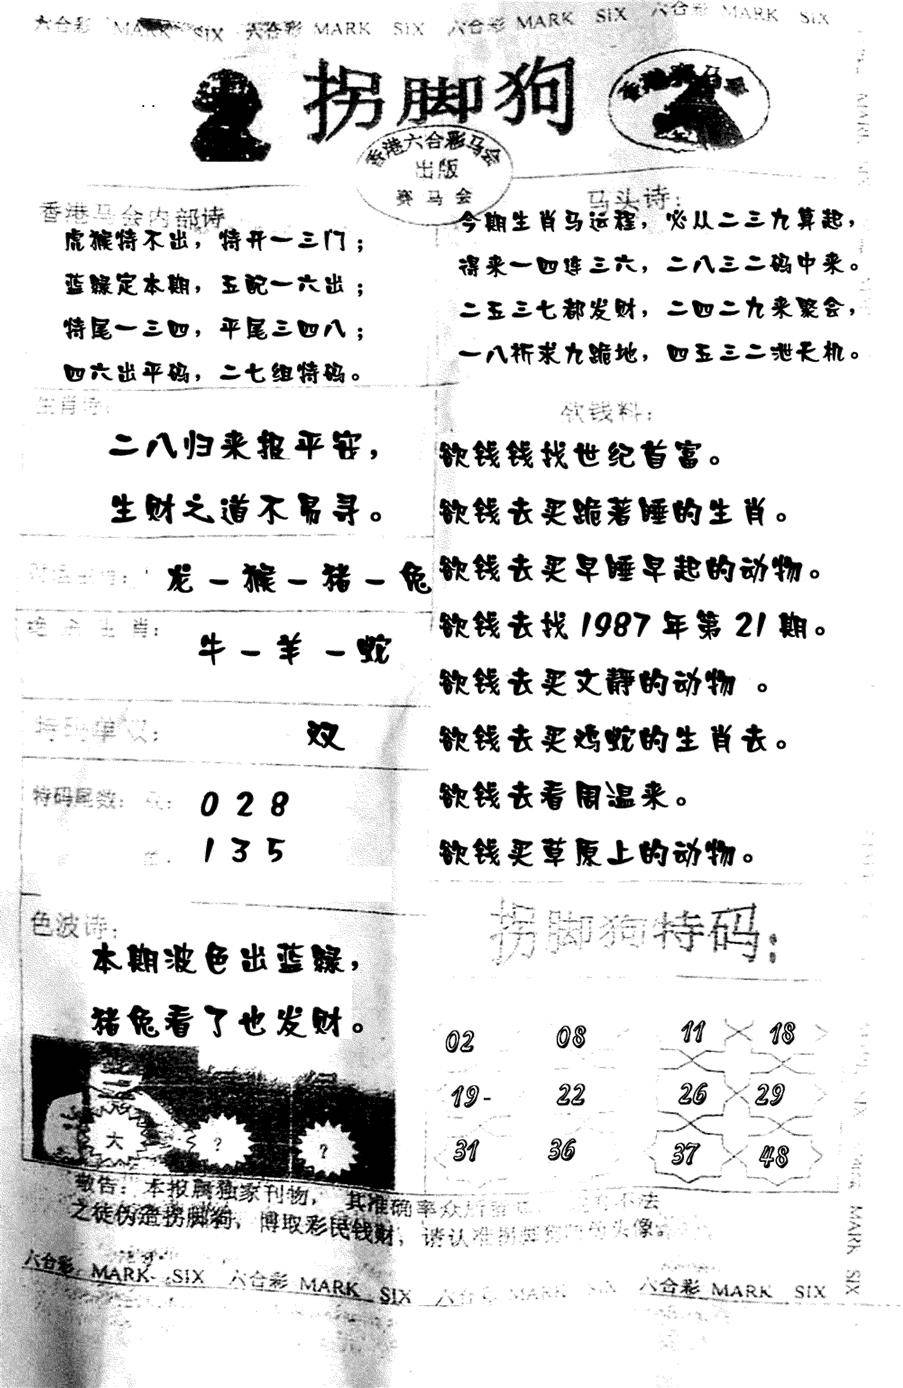 六合彩 MARK SIX 六合彩 MARK SIX 六合彩 MARK SIX 六合彩 MARK SIX
拐脚狗
香港赛马会
香港六合彩马会
出版
赛马会
香港马会内部诗
虎猴特不出，特开一三门；
蓝绿定本期，五配一六出；
特尾一三四，平尾三四八；
四六出平码，二七组特码。
马头诗：
今期生肖马运程，必从二三九算起，
得来一四连三六，二八三二码中来。
二五三七都发财，二四二九来聚会，
一八祈求九跪地，四五三二泄天机。
生肖诗：
二八归来报平安，
生财之道不易寻。
龙－猴－猪－兔
绝杀生肖：
牛－羊－蛇
特码单双：
双
特码尾数：双：
0 2 8
1 3 5
欲钱料：
欲钱钱找世纪首富。
欲钱去买跪著睡的生肖。
欲钱去买早睡早起的动物。
欲钱去找1987年第21期。
欲钱去买文静的动物 。
欲钱去买鸡蛇的生肖去。
欲钱去看周温来。
欲钱买草原上的动物。
色波诗：
本期波色出蓝绿，
猪兔看了也发财。
大 ? ?
拐脚狗特码：
02 08 11 18
19- 22 26 29
31 36 37 48
敬告：本报属独家刊物，其准确率众所 不法
之徒伪造拐脚狗，博取彩民钱财，请认准拐脚 头像。
六合彩 MARK SIX 六合彩 MARK SIX 六合彩 MARK SIX 六合彩 MARK SIX
MARK SIX